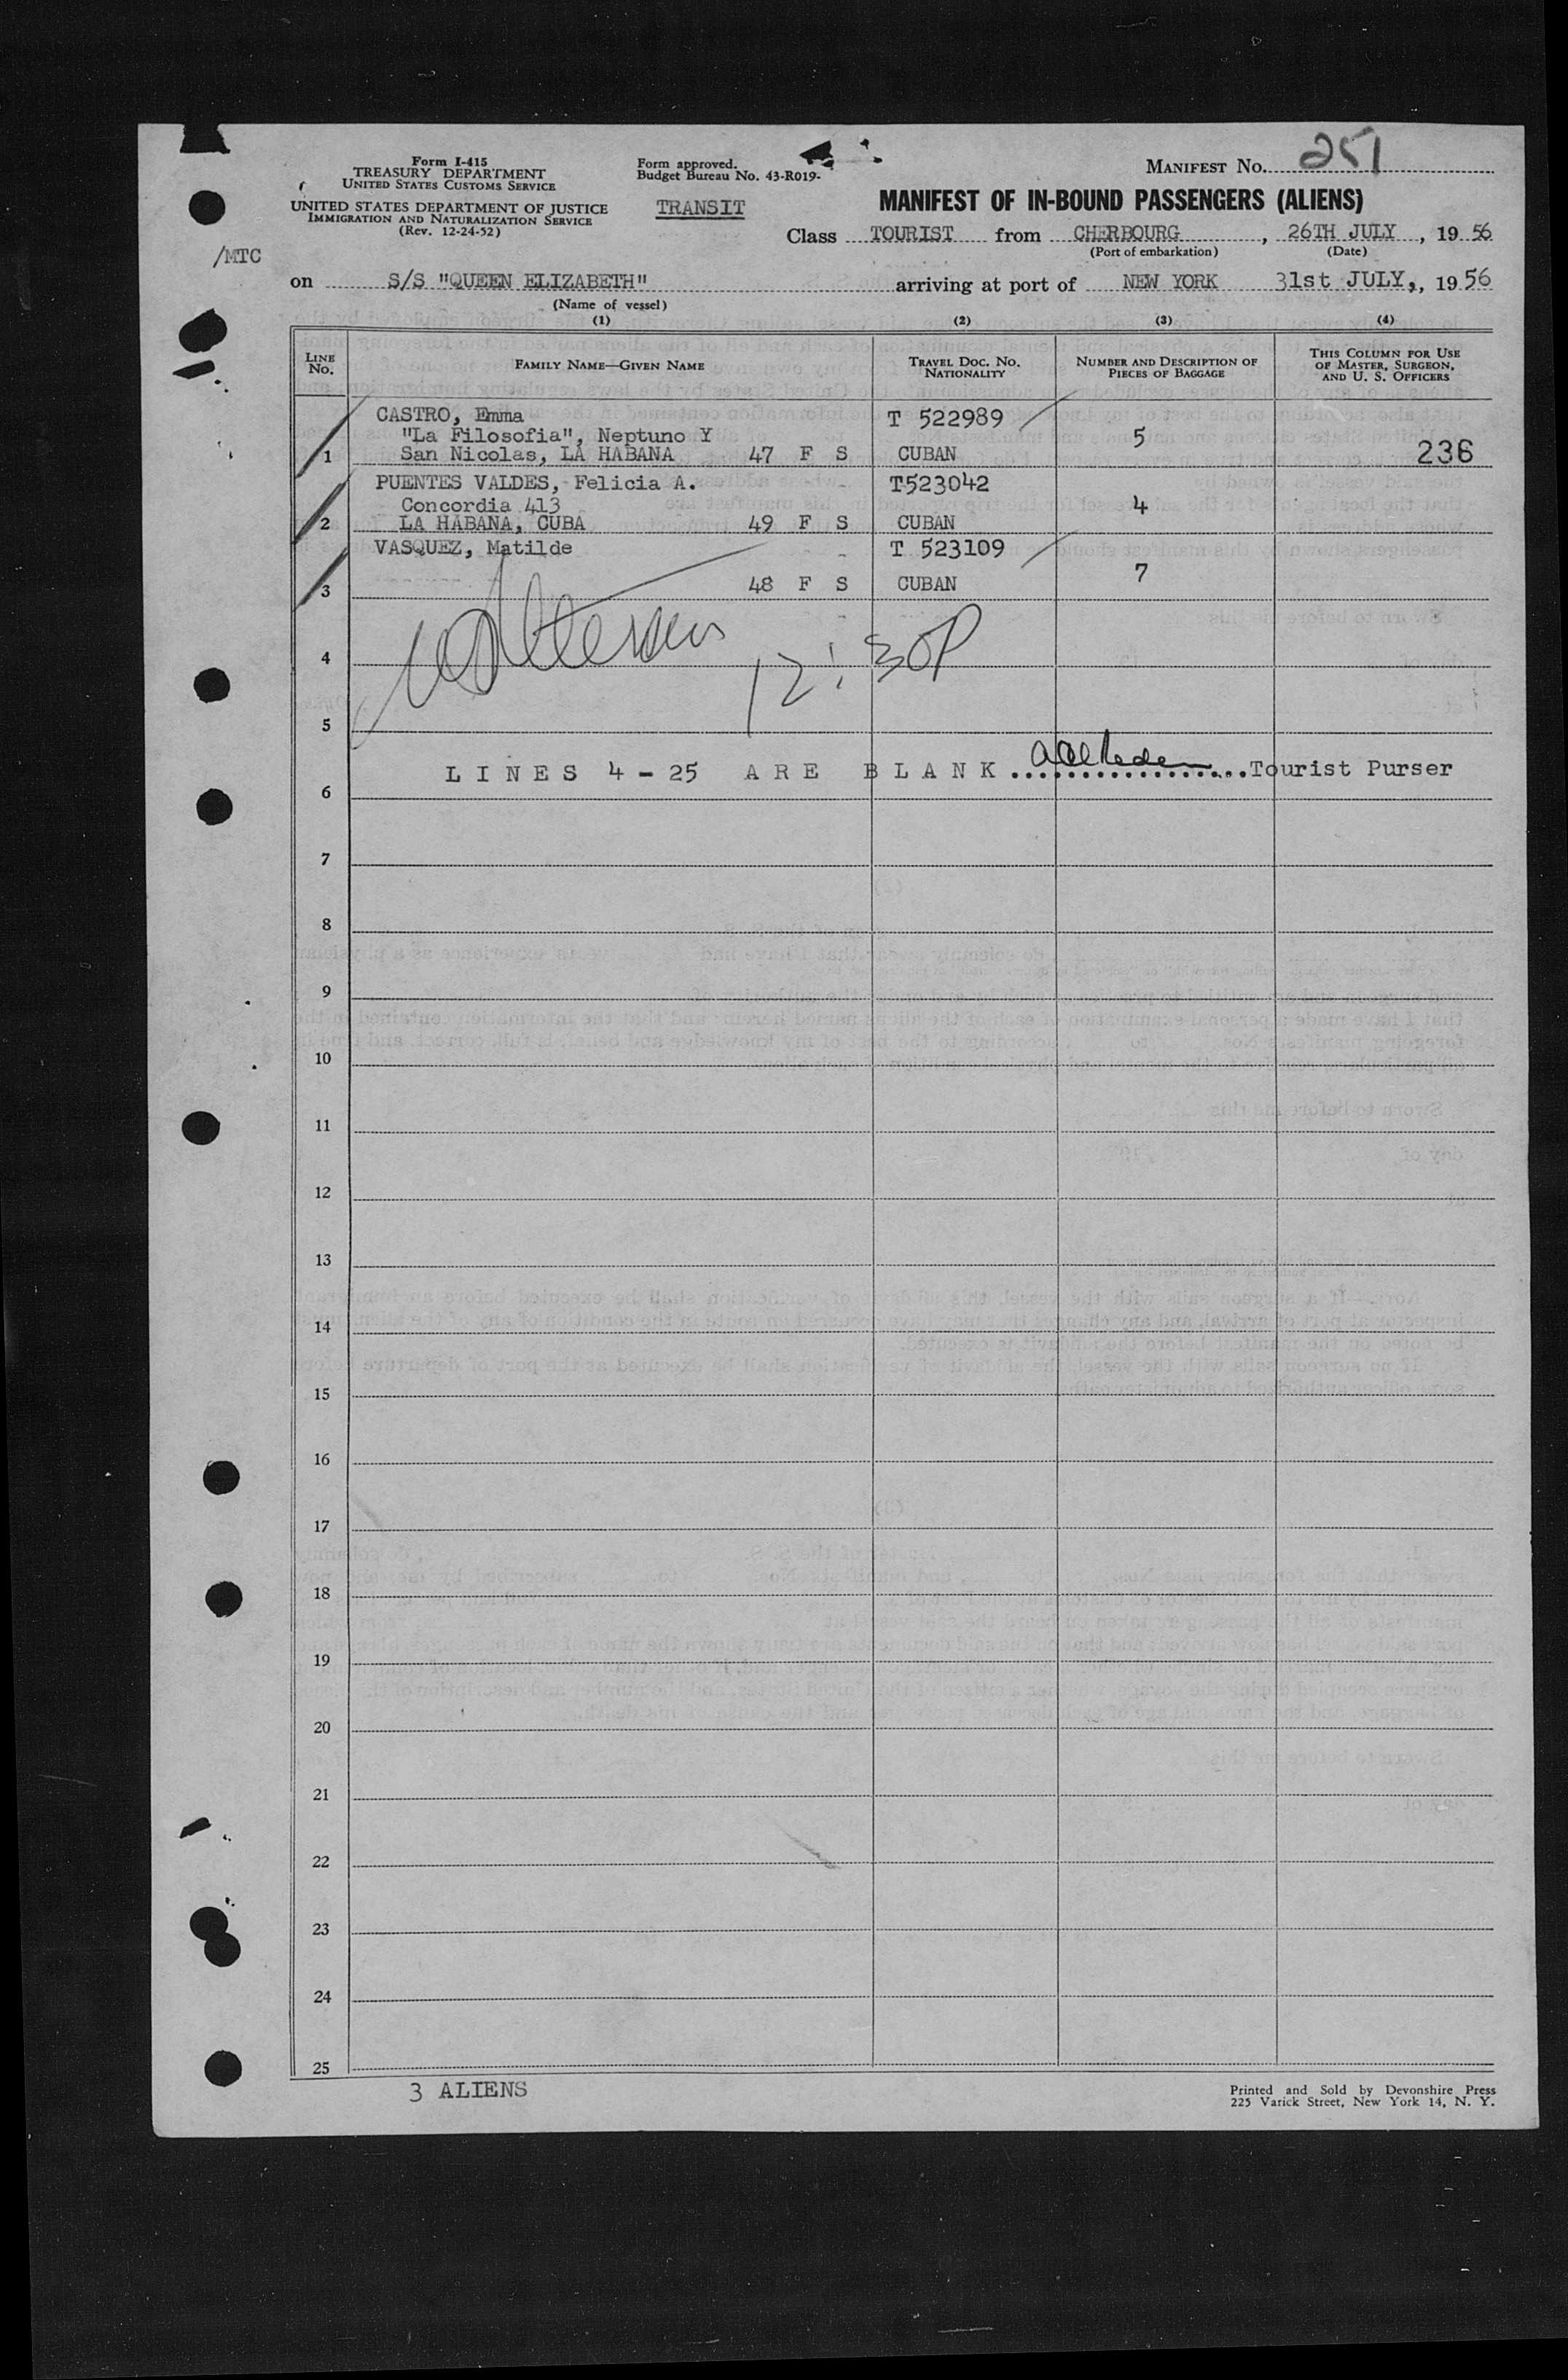 Form I-415
TREASURY DEPARTMENT
UNITED STATES CUSTOMS SERVICE
UNITED STATES DEPARTMENT OF JUSTICE
IMMIGRATION AND NATURALIZATION SERVICE
(Rev. 12-24-52)
Form approved.
Budget Bureau No. 43-R019-
TRANSIT
MANIFEST No. 251
MANIFEST OF IN-BOUND PASSENGERS (ALIENS)
Class TOURIST from CHERBOURG, 26TH JULY, 19 56
(Port of embarkation) (Date)
/MTC
on S/S "QUEEN ELIZABETH" arriving at port of NEW YORK 31st JULY,, 19 56
(Name of vessel)
(1) (2) (3) (4)
LINE No. FAMILY NAME—GIVEN NAME TRAVEL DOC. NO. NATIONALITY NUMBER AND DESCRIPTION OF PIECES OF BAGGAGE THIS COLUMN FOR USE OF MASTER, SURGEON, AND U. S. OFFICERS
CASTRO, Emma T 522989
"La Filosofia", Neptuno Y 5
1 San Nicolas, LA HABANA 47 F S CUBAN 236
PUENTES VALDES, Felicia A. T523042
Concordia 413 4
2 LA HABANA, CUBA 49 F S CUBAN
VASQUEZ, Matilde T 523109
3 48 F S CUBAN 7
4 12:30P
5
LINES 4 - 25 ARE BLANK Tourist Purser
6
7
8
9
10
11
12
13
14
15
16
17
18
19
20
21
22
23
24
25
3 ALIENS
Printed and Sold by Devonshire Press
225 Varick Street, New York 14, N. Y.